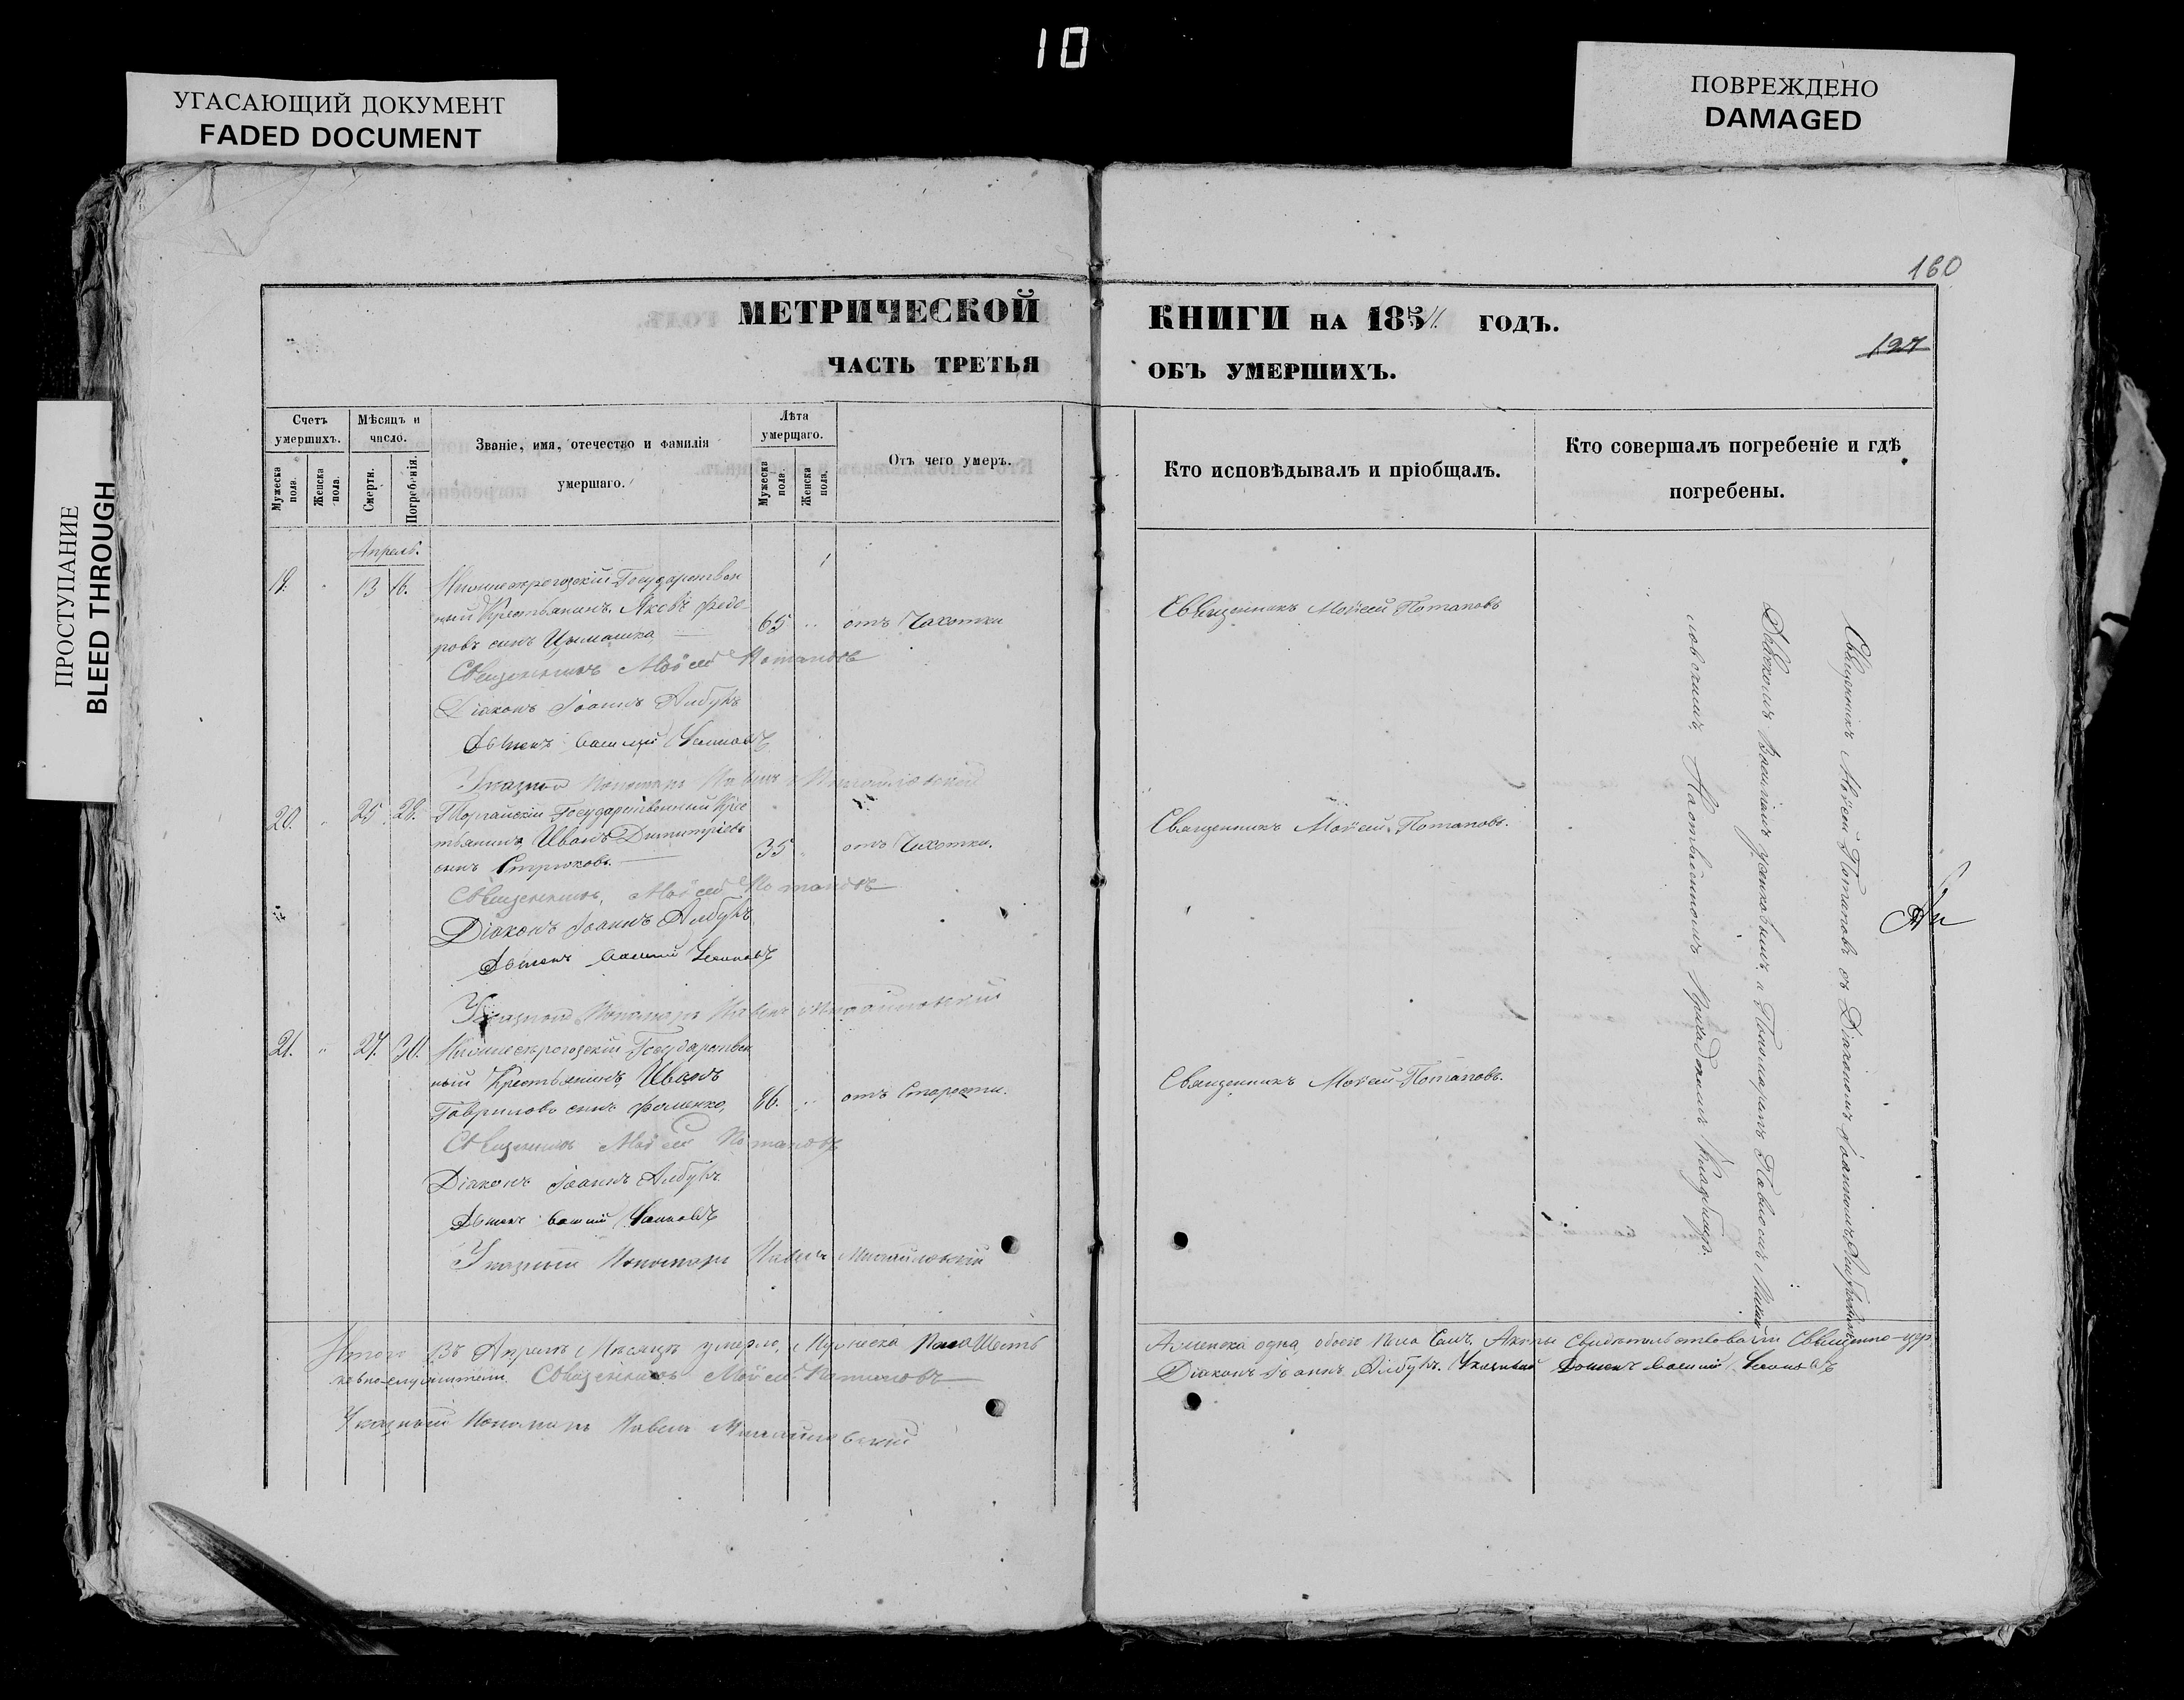 10
УГАСАЮЩИЙ ДОКУМЕНТ
FADED DOCUMENT
ПОВРЕЖДЕНО
DAMAGED
ПРОСТУПАНИЕ
BLEED THROUGH
160
МЕТРИЧЕСКОЙ КНИГИ НА 185 ГОДЪ.
127
ЧАСТЬ ТРЕТЬЯ ОБЪ УМЕРШИХЪ.
Счетъ умершихъ.
Мужеска пола.
Женска пола.
Мѣсяцъ и число.
Смерти.
Погребенія.
Званіе, имя, отечество и фамилія
умершаго.
Лѣта умершаго.
Мужеска пола.
Женска пола.
Отъ чего умеръ.
Кто исповѣдывалъ и пріобщалъ.
Кто совершалъ погребеніе и гдѣ
погребены.
Апрель.
19. 13 16. Нижнесерогозскій Государствен
ный Крестьянинъ Яковъ Федо-
ровъ сынъ 65 отъ Чахотки
Священникъ Моѵсей Потаповъ
Священникъ Моѵсей Потаповъ
Діаконъ Іоаннъ Албулъ
Дьячекъ Василій
Указный Пономарь Павелъ Михайловскій
20. 25 28. Торгайскій Государственный Крес
тьянинъ Иванъ Димитріевъ
сынъ Стрюковъ. 35 отъ Чахотки.
Священникъ Моѵсей Потаповъ.
Священникъ Моѵсей Потаповъ
Діаконъ Іоаннъ Албулъ
Дьячекъ Василій
Указный Пономарь Павелъ Михайловскій
21. 27. 30. Нижнесерогозскій Государствен
ный Крестьянинъ Иванъ
Гавриловъ сынъ Фоменко, 86. отъ Старости.
Священникъ Моѵсей Потаповъ.
Священникъ Моѵсей Потаповъ
Діаконъ Іоаннъ Албулъ
Дьячекъ Василій
Указный Пономарь Павелъ Михайловскій
Священникъ Моѵсей Потаповъ съ Діакономъ Іоанномъ
Дьячкомъ Василіемъ и Пономаремъ Павломъ Михай
ловскимъ, на приходскомъ кладбищѣ.
Итого Въ Апрелѣ Мѣсяцѣ умерло, Мужеска Пола Шесть
А женска одна, обоего пола Семь. Акты свидѣтельствовали Священно-цер
ковнослужители. Священникъ Моѵсей Потаповъ
Діаконъ Іоаннъ Албулъ. Указный Дьячекъ Василій
Указный Пономарь Павелъ Михайловскій